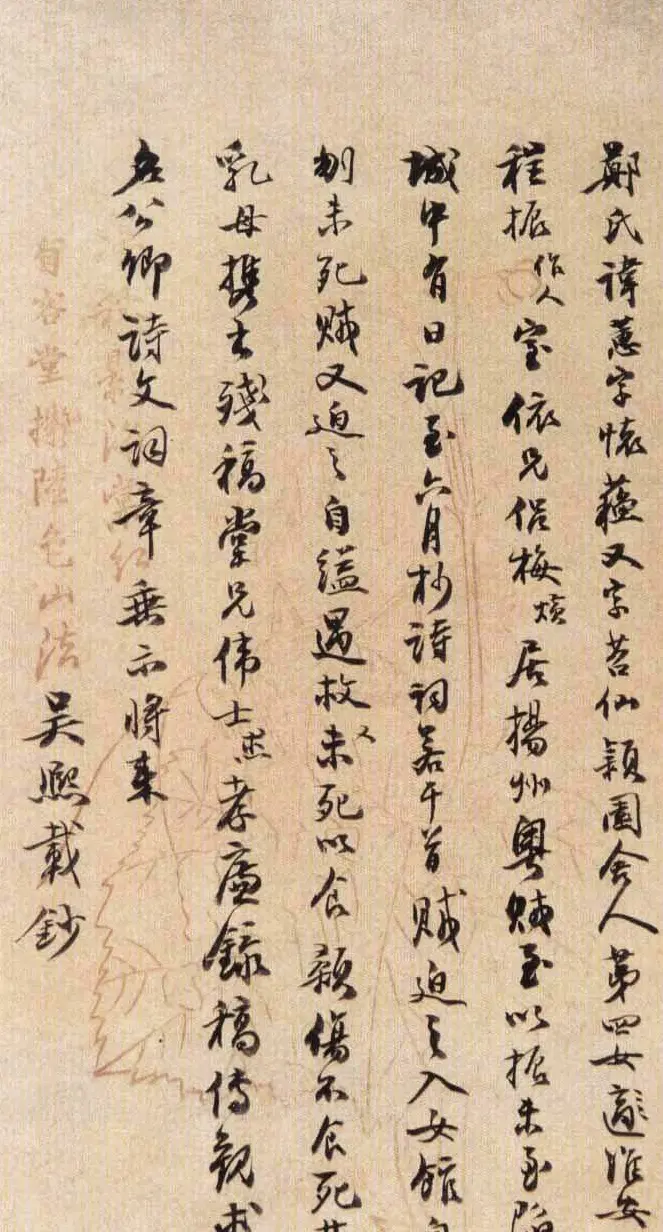 鄭氏諱蕙字懷蘓又字苕仙潁園舍人第四女適淮安
程振作人室依兄侣梅熉居揚州粤賊至以振未至陷
城中有日記至六月杪詩詞若干首賊迫之入女館自
刎未死賊又迫之自縊遇救又未死以食顙傷不食死其
乳母攜出殘稿堂兄偉士杰孝廉錄稿傳觀求
名公卿詩文詞章垂示將來
吴熙載鈔
自容堂撫陸包山法